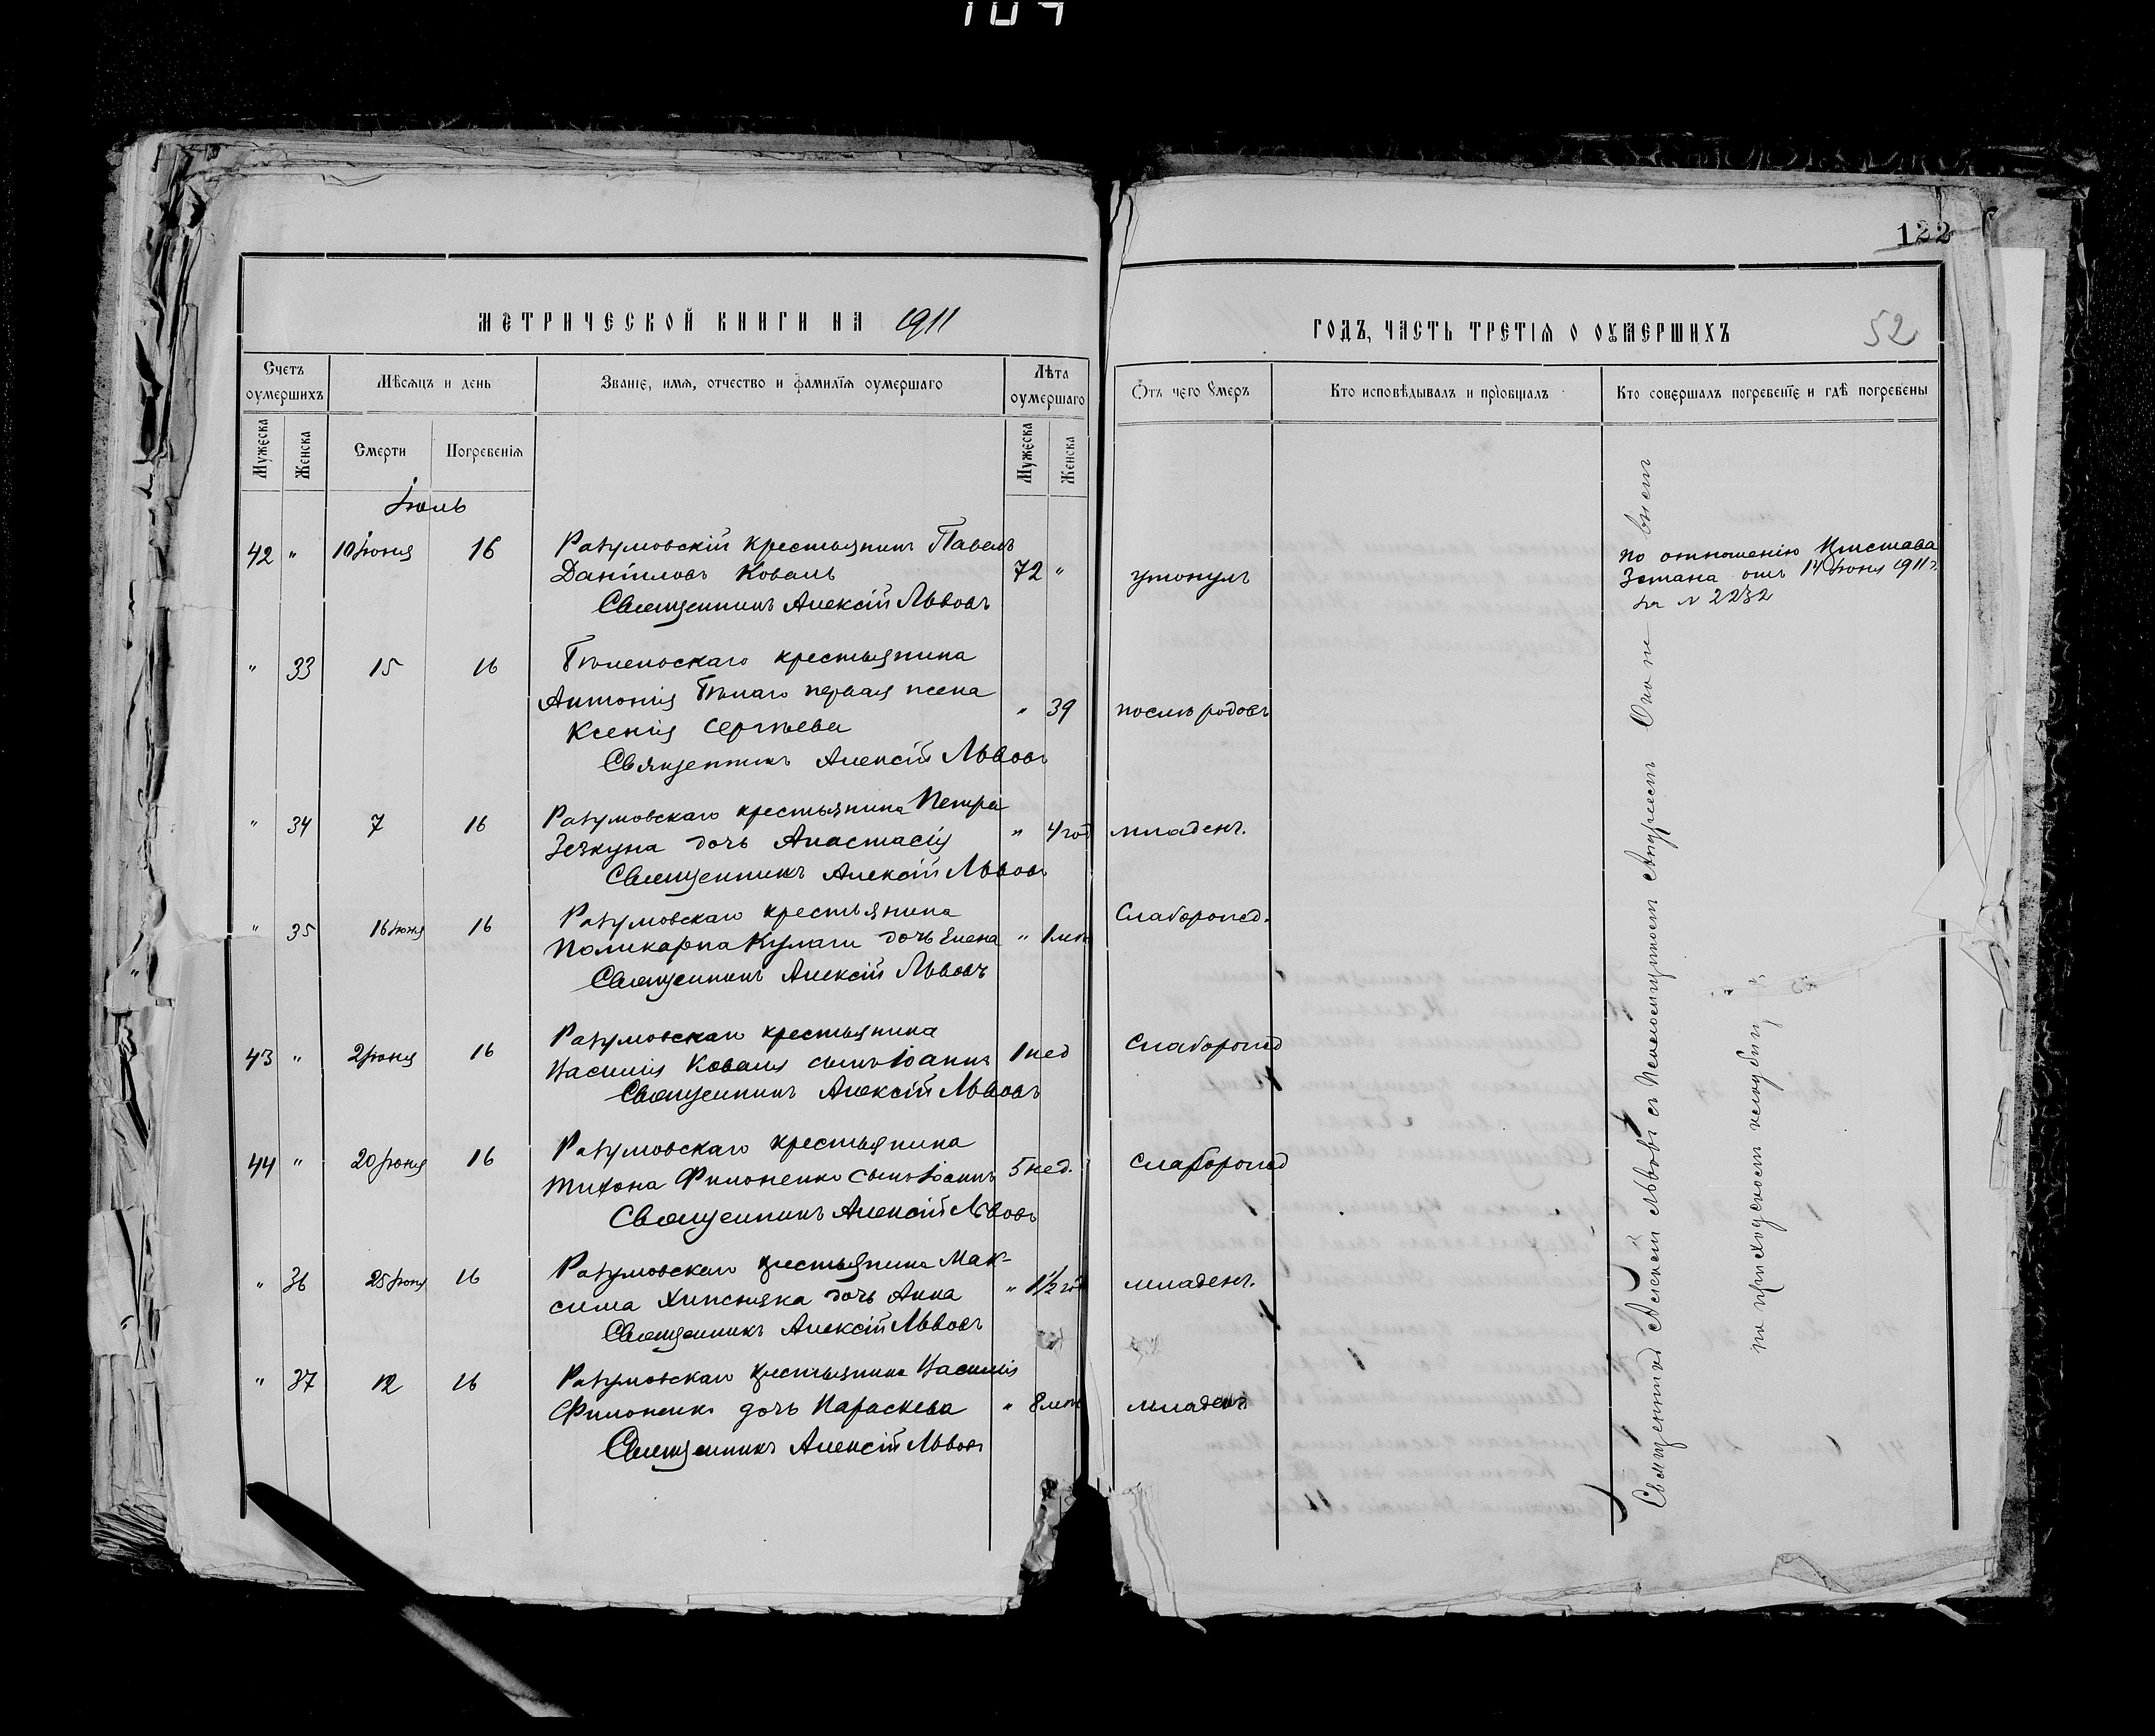 107
122
МЕТРИЧЕСКОЙ КНИГИ НА 1911
ГОДЪ, ЧАСТЬ ТРЕТІѦ О ОУМЕРШИХЪ
52
Счетъ оумершихъ
Мѣсѧцъ и день
Званіе, имѧ, отчество и фамиліѧ оумершаго
Лѣта оумершаго
Ѿтъ чего оумеръ
Кто исповѣдывалъ и пріобщалъ
Кто совершалъ погребеніе и гдѣ погребены
Мужеска
Женска
Смерти
Погребеніѧ
Мужеска
Женска
Іюль
42 " 10 Іюня 16 Разумовскій крестьянинъ Павелъ
Даніиловъ Коваль 72 " утонулъ
Священникъ Алексій Львовъ
По отношенію Пристава
3 стана отъ 14 Іюня 1911 г.
за № 2232
" 33 15 16 крестьянина
Антонія Бѣлаго первая жена " 39 послѣ родовъ
Ксенія Сергѣева
Священникъ Алексій Львовъ
" 34 7 16 Разумовскаго крестьянина Петра
дочь Анастасія " 4 год младенч.
Священникъ Алексій Львовъ
" 35 16 Іюня 16 Разумовскаго крестьянина
Поликарпа Кулаги дочь Елена " 1 мѣс Слаборожд.
Священникъ Алексій Львовъ
43 " 2 Іюня 16 Разумовскаго крестьянина
Василія Коваля сынъ Іоаннъ 1 нед Слаборожд
Священникъ Алексій Львовъ
44 " 20 Іюня 16 Разумовскаго крестьянина
Тихона Филоненко сынъ Іоаннъ 5 нед. слаборожд
Священникъ Алексій Львовъ
" 36 28 Іюня 16 Разумовскаго крестьянина Мак-
сима дочь Анна " 1½ год младенч.
Священникъ Алексій Львовъ
" 37 12 16 Разумовскаго крестьянина Василія
Филоненко дочь Параскева " 8 мѣс младенч
Священникъ Алексій Львовъ
Священникъ Алексѣй Львовъ съ Псаломщикомъ
на приходскомъ кладбищѣ